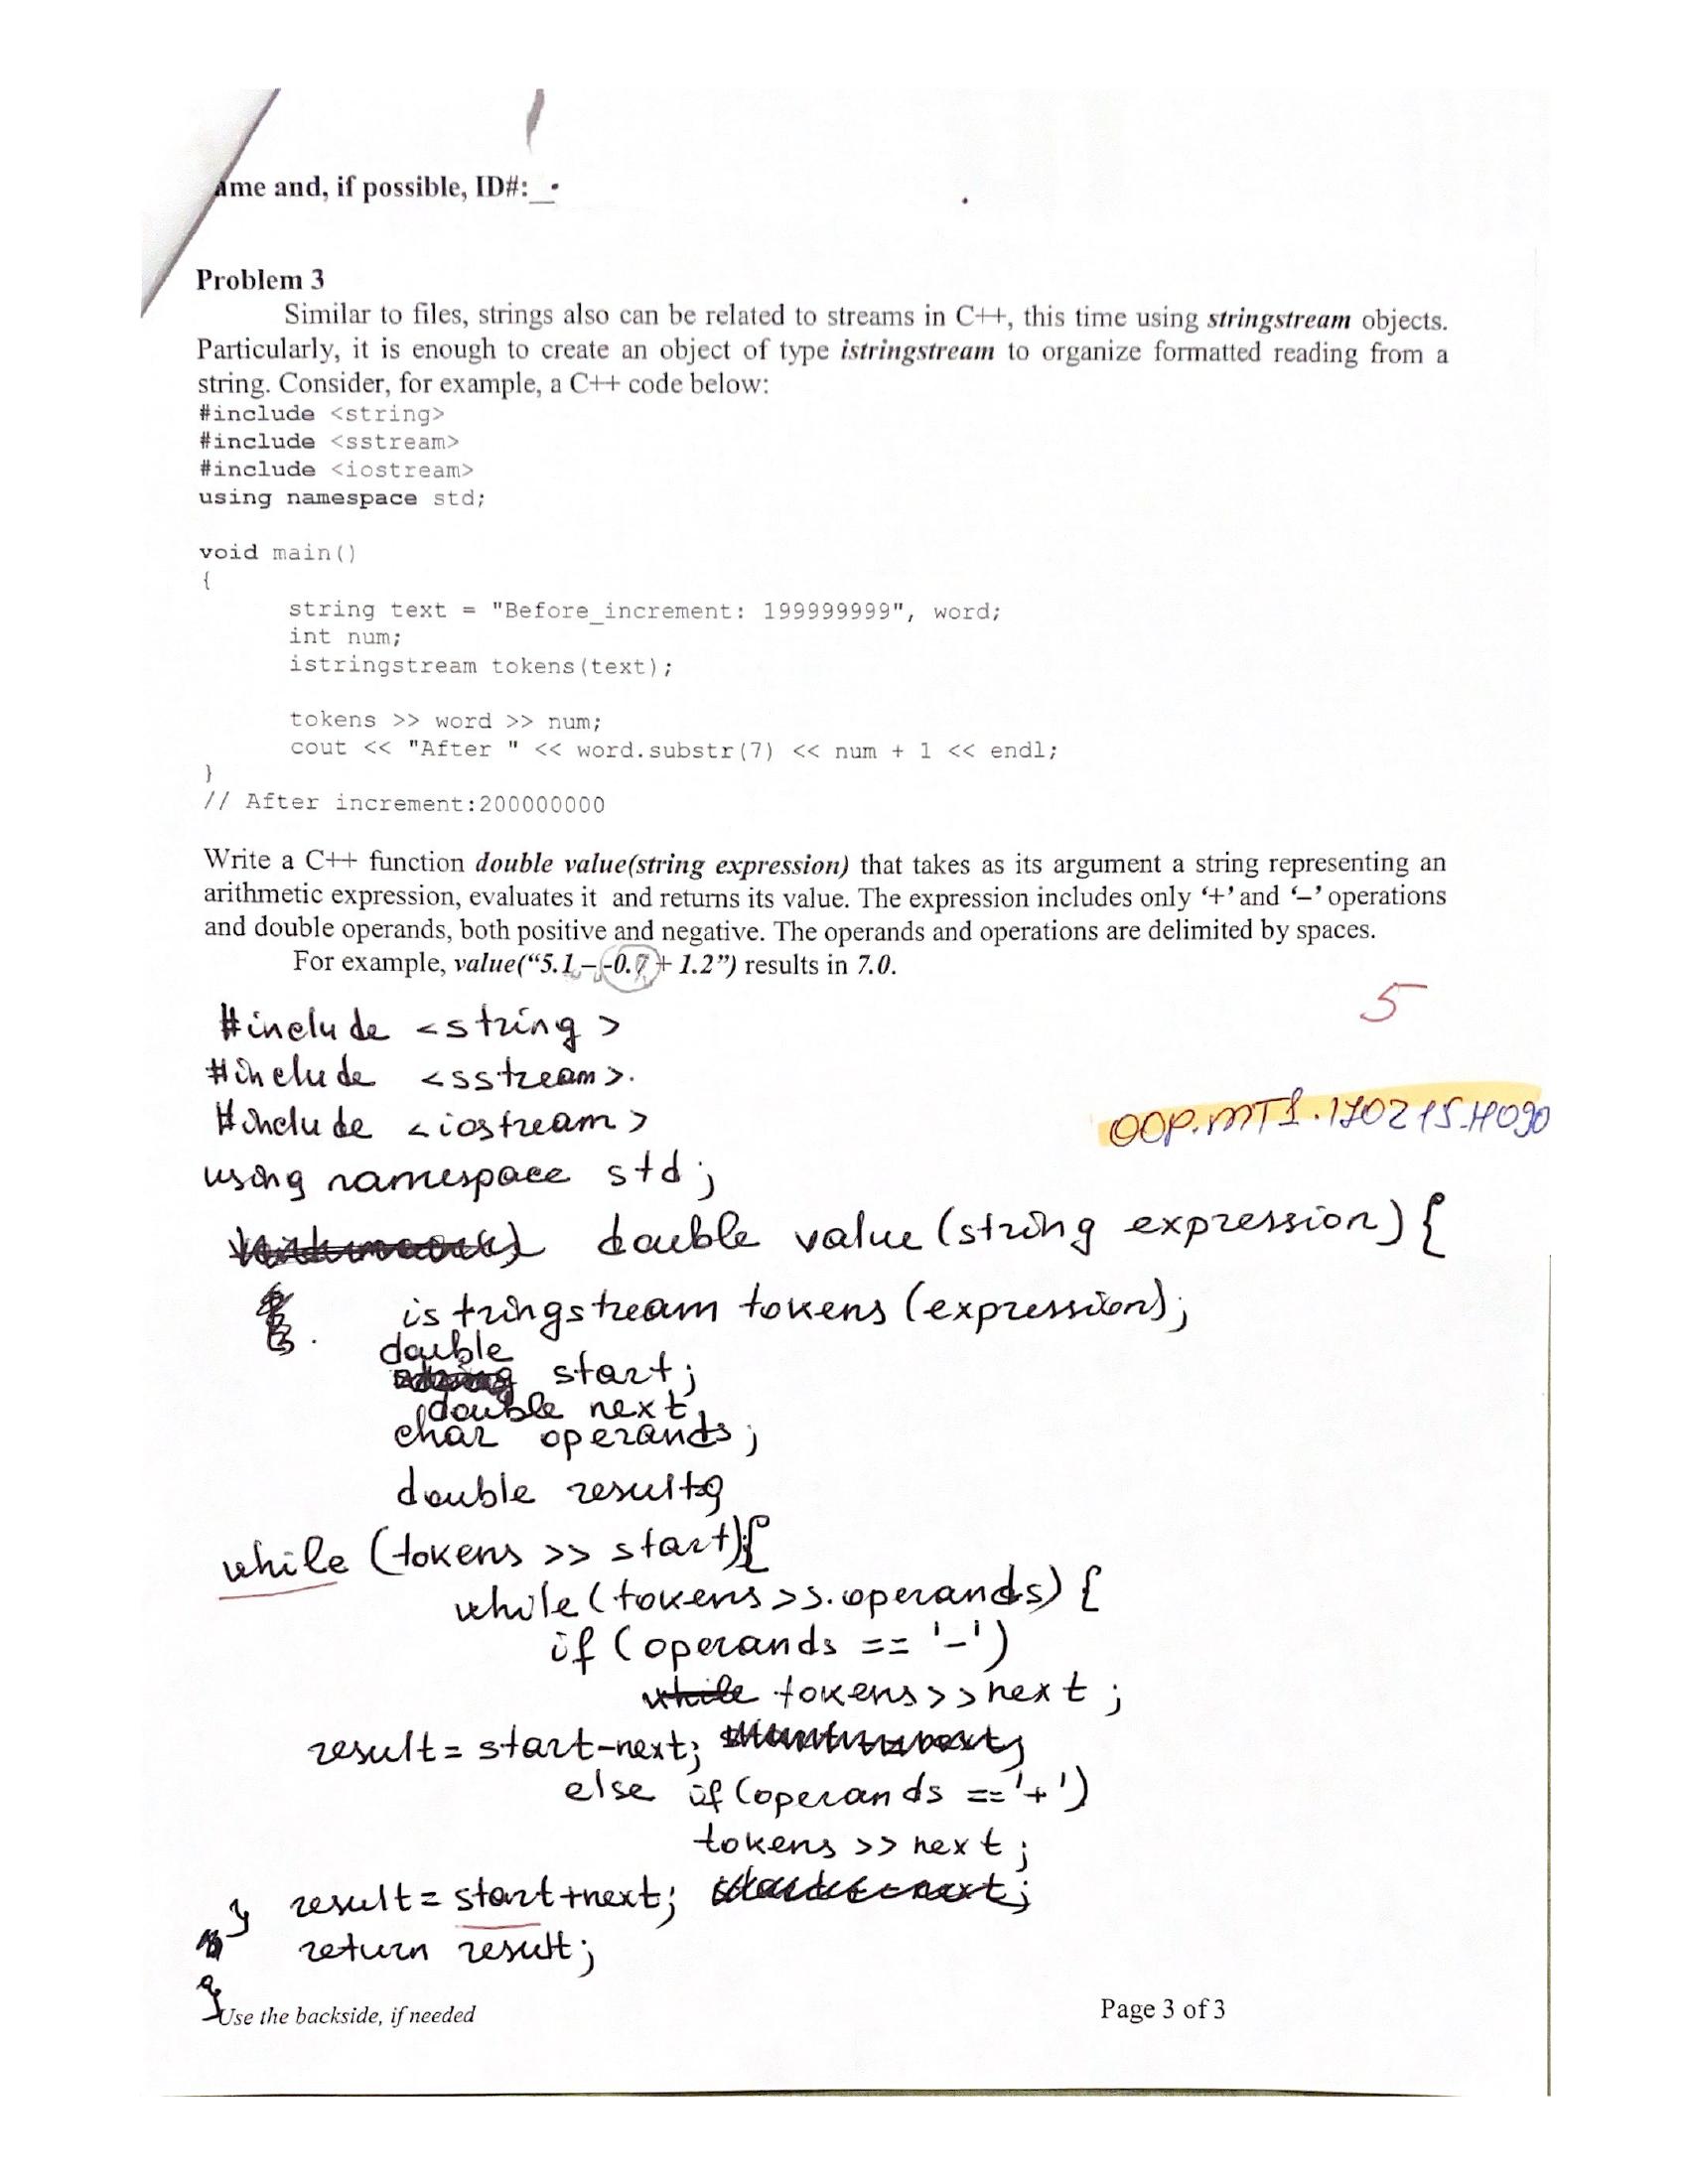 ame and, if possible, ID#:__
Problem 3
Similar to files, strings also can be related to streams in C++, this time using stringstream objects.
Particularly, it is enough to create an object of type istringstream to organize formatted reading from a
string. Consider, for example, a C++ code below:
#include <string>
#include <sstream>
#include <iostream>
using namespace std;
void main()
{
string text = "Before_increment: 199999999", word;
int num;
istringstream tokens(text);
tokens >> word >> num;
cout << "After " << word.substr(7) << num + 1 << endl;
}
// After increment:200000000
Write a C++ function double value(string expression) that takes as its argument a string representing an
arithmetic expression, evaluates it and returns its value. The expression includes only ‘+’ and ‘–’ operations
and double operands, both positive and negative. The operands and operations are delimited by spaces.
For example, value(“5.1 – -0.7 + 1.2”) results in 7.0.
5
#include <string>
#include <sstream>.
#include <iostream>
OOP.MT1.170215.H090
using namespace std;
double value(string expression) {
istringstream tokens (expression);
double
start;
double next;
char operands;
double result;
while (tokens >> start){
while(tokens>>operands) {
if (operands == '-')
while tokens>>next;
result = start-next;
else if (operands == '+')
tokens >> next;
} result = start+next;
return result;
}
Use the backside, if needed
Page 3 of 3